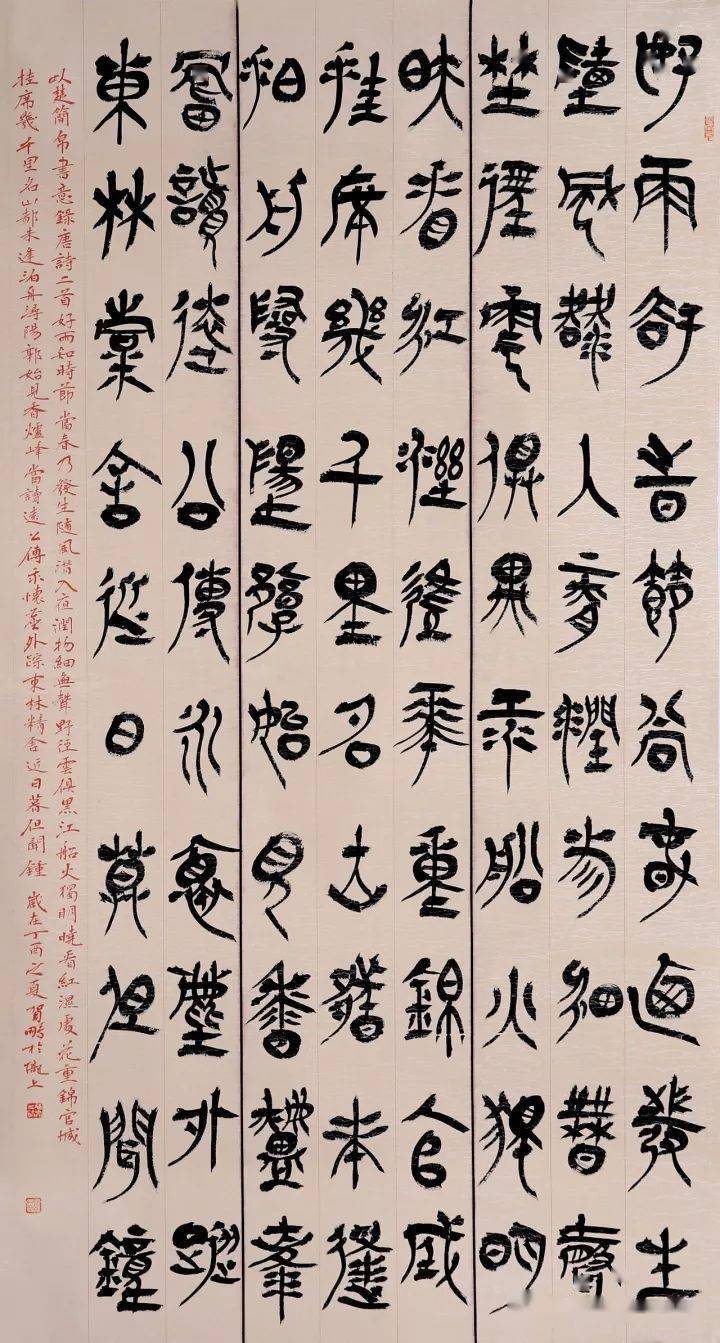 好雨知時節當春乃發生
隨風潛入夜潤物細無聲
野徑雲俱黑江船火獨明
曉看紅濕處花重錦官城
挂席幾千里名山都未逢
泊舟潯陽郭始見香爐峰
嘗讀遠公傳永懷塵外蹤
東林精舍近日暮但聞鐘
以楚簡帛書意錄唐詩二首好雨知時節當春乃發生隨風潛入夜潤物細無聲野徑雲俱黑江船火獨明曉看紅濕處花重錦官城
挂席幾千里名山都未逢泊舟潯陽郭始見香爐峰嘗讀遠公傳永懷塵外踪東林精舍近日暮但聞鍾歲在丁酉之夏賀鵬於上